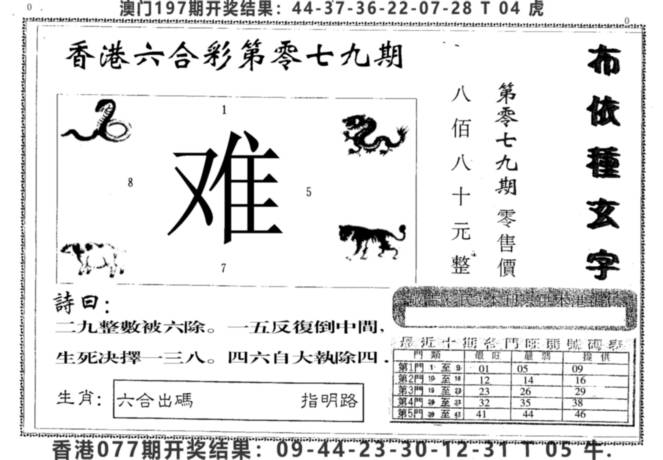 澳门197期开奖结果：44-37-36-22-07-28 T 04 虎
0
0
香港六合彩第零七九期
1
难
8
5
7
布依種玄字
第零七九期 零售價
八佰八十元整
詩曰：
二九整數被六除。一五反復倒中間，
生死决擇一三八。四六自大執除四．
生肖：
六合出碼 指明路
最近十期各門旺開號碼表
門 類 提供
第1門 1 至 9 01 05 09
第2門 至 12 14 16
第3門 至 23 26 29
第4門 至 32 35 38
第5門 至 41 44 46
香港077期开奖结果：09-44-23-30-12-31 T 05 牛.